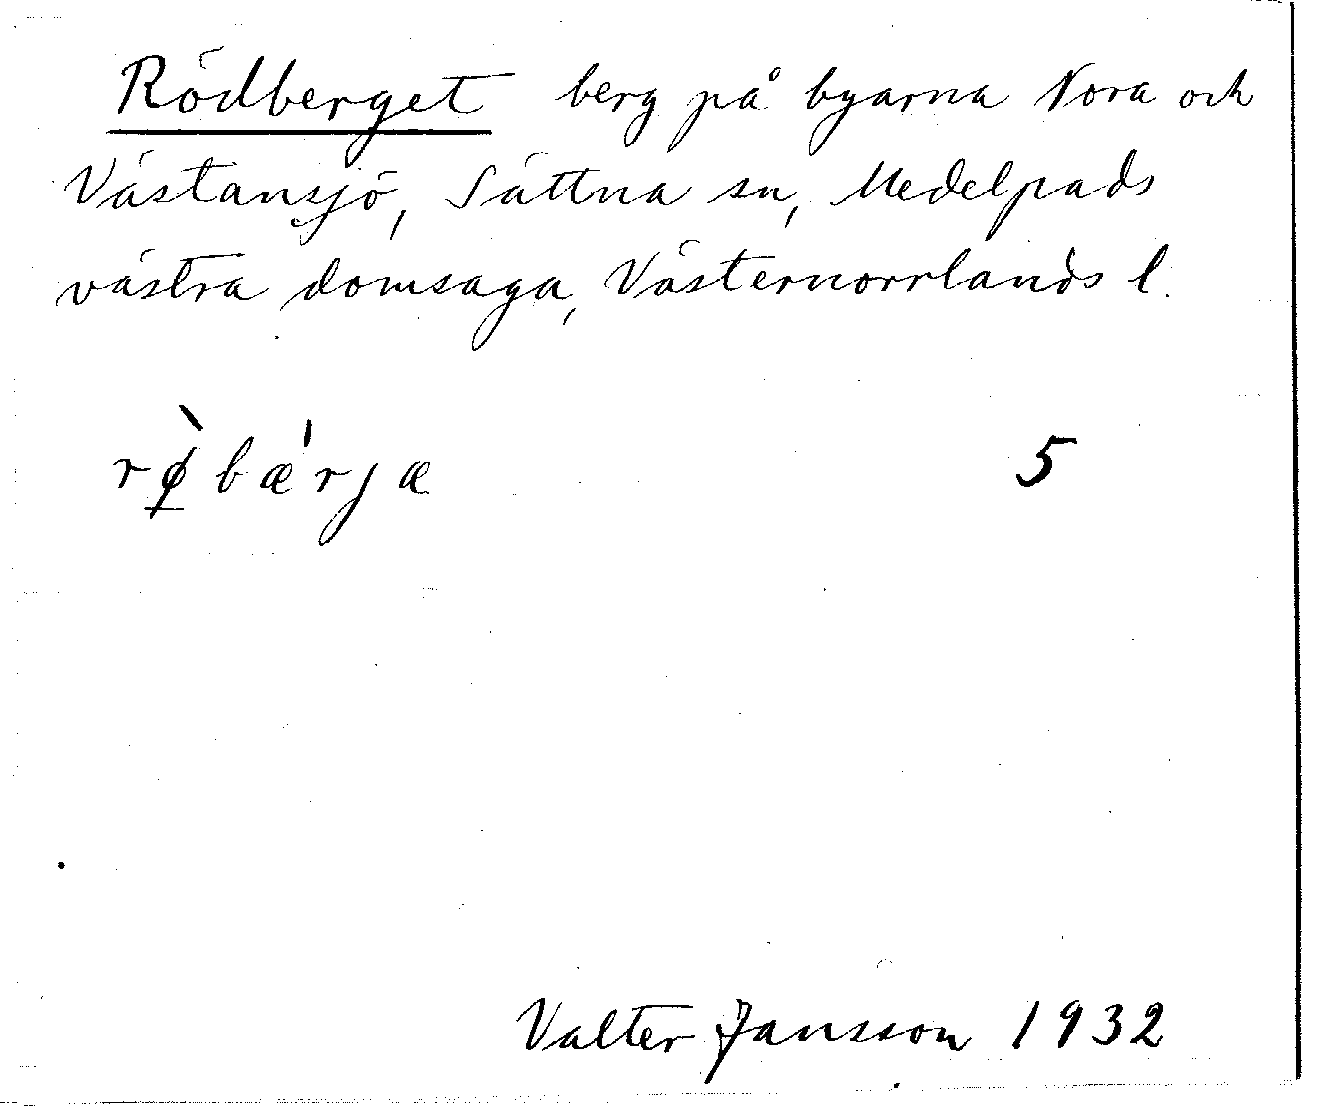 Rödberget berg på byarna Nora och
Västansjö, Sättna sn, Medelpads
västra domsaga, Västernorrlands l.
rø̱̀bæ'rjæ 5
Valter Jansson 1932